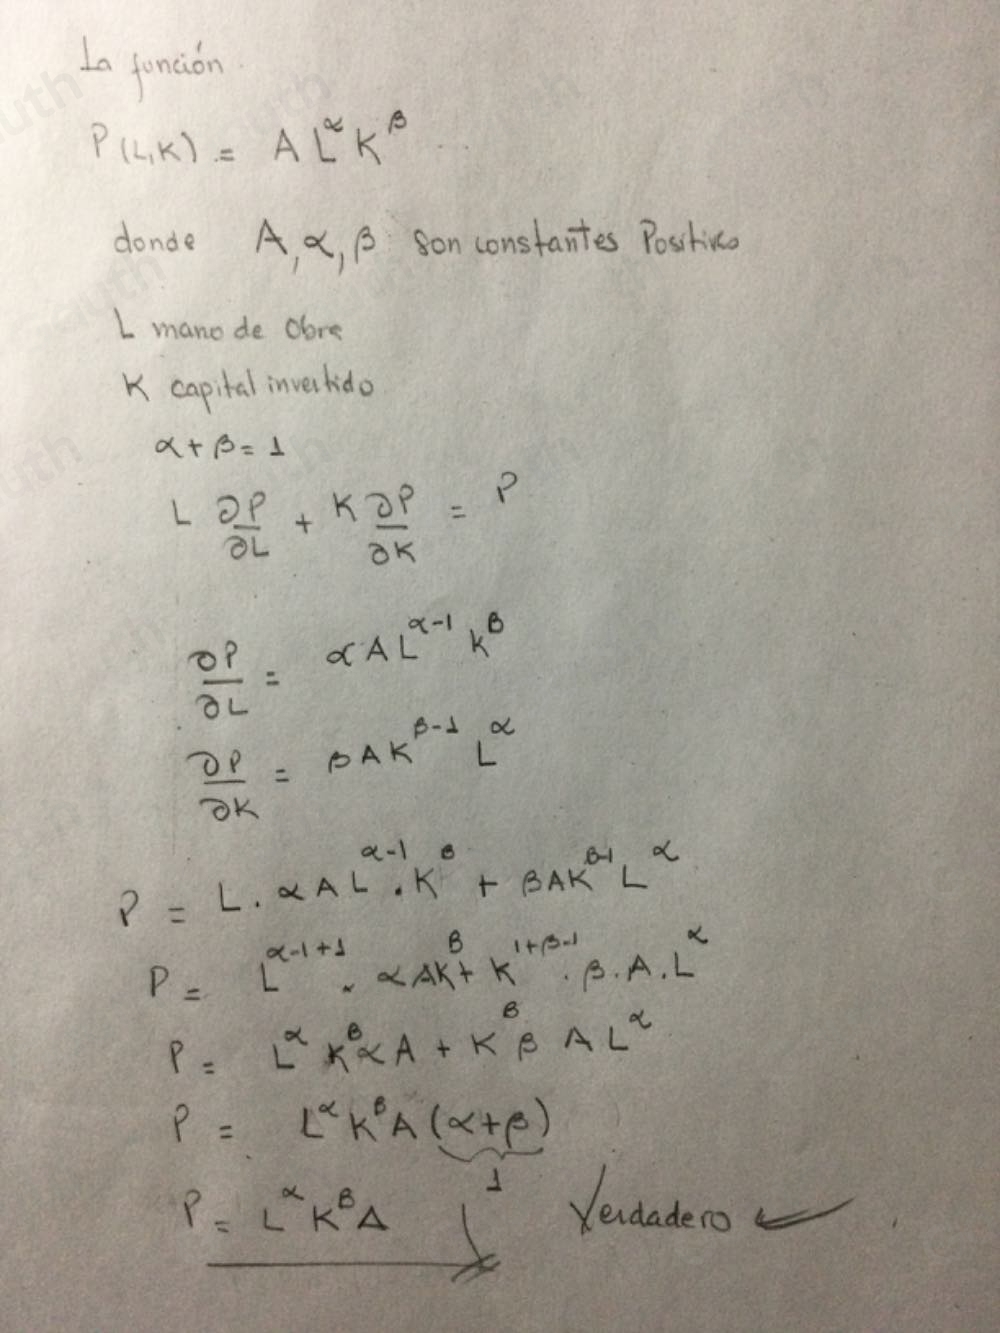 La función
P(L,K) = A L^α K^β
donde A, α, β son constantes Positivas
L mano de Obra
K capital invertido
α + β = 1
L ∂P/∂L + K ∂P/∂K = P
∂P/∂L = α A L^(α-1) K^β
∂P/∂K = β A K^(β-1) L^α
P = L . α A L^(α-1) . K^β + β A K^(β-1) L^α
P = L^(α-1+1) . α A K^β + K^(1+β-1) . β . A . L^α
P = L^α K^β α A + K^β β A L^α
P = L^α K^β A (α+β)
1
P = L^α K^β A Verdadero